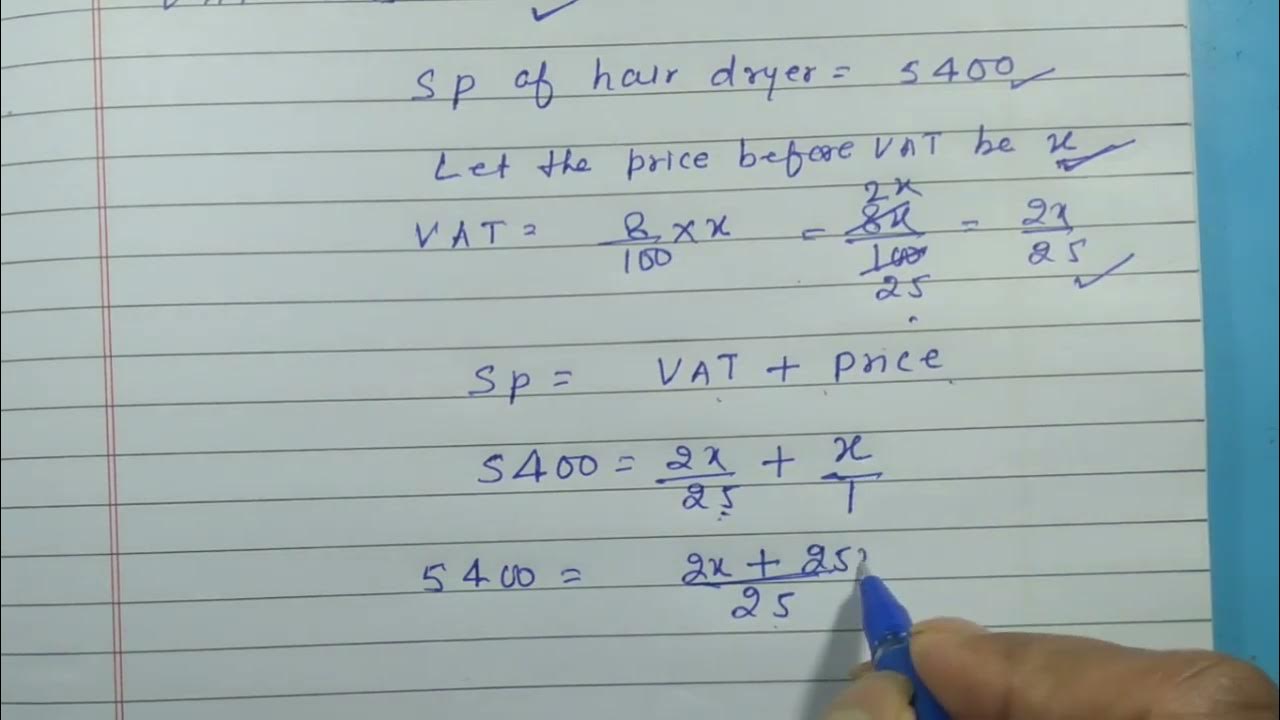 Sp of hair dryer = 5400
Let the price before VAT be x
VAT = 8/100 × x = 8x/100 2x 25 = 2x/25
Sp = VAT + price
5400 = 2x/25 + x/1
5400 = 2x + 25x/25